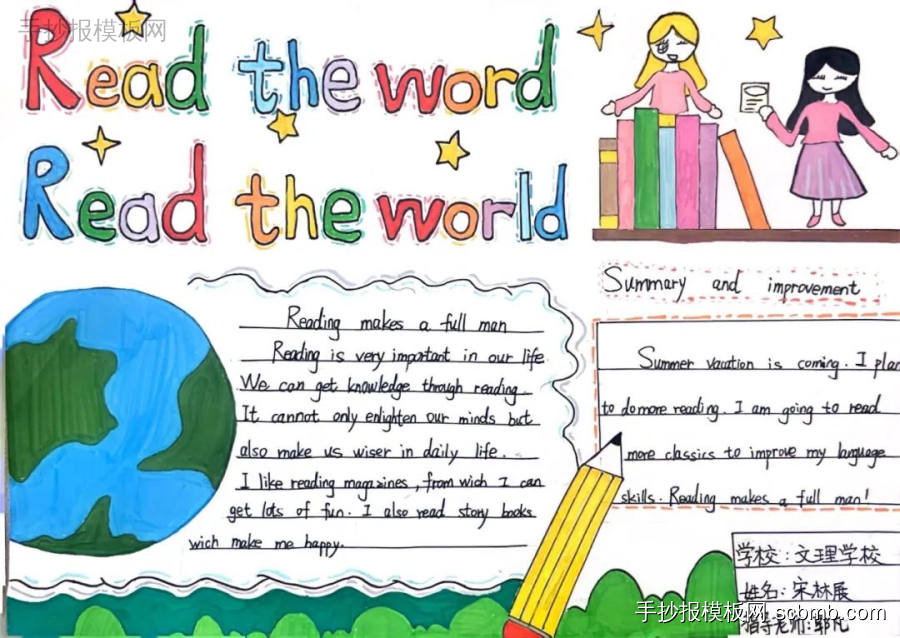 手抄报模板网
Read the word
Read the world
Summary and improvement
Reading makes a full man
Reading is very important in our life.
We can get knowledge through reading.
It cannot only enlighten our minds but
also make us wiser in daily life.
I like reading magazines, from wich I can
get lots of fun. I also read story books
wich make me happy.
Summer vacation is coming. I plan
to do more reading. I am going to read
more classics to improve my language
skills. Reading makes a full man!
学校:文理学校
姓名:宋林展
指导老师:
手抄报模板网 scbmb.com